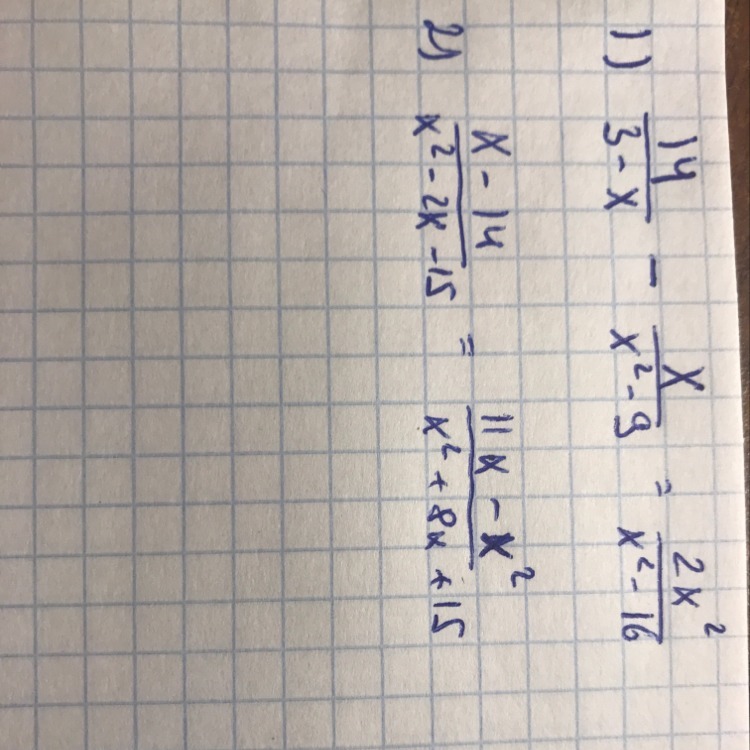 1) 14/(3 - x) - x/(x² - 9) = 2x²/(x² - 16)
2) (x - 14)/(x² - 2x - 15) = (11x - x²)/(x² + 8x + 15)